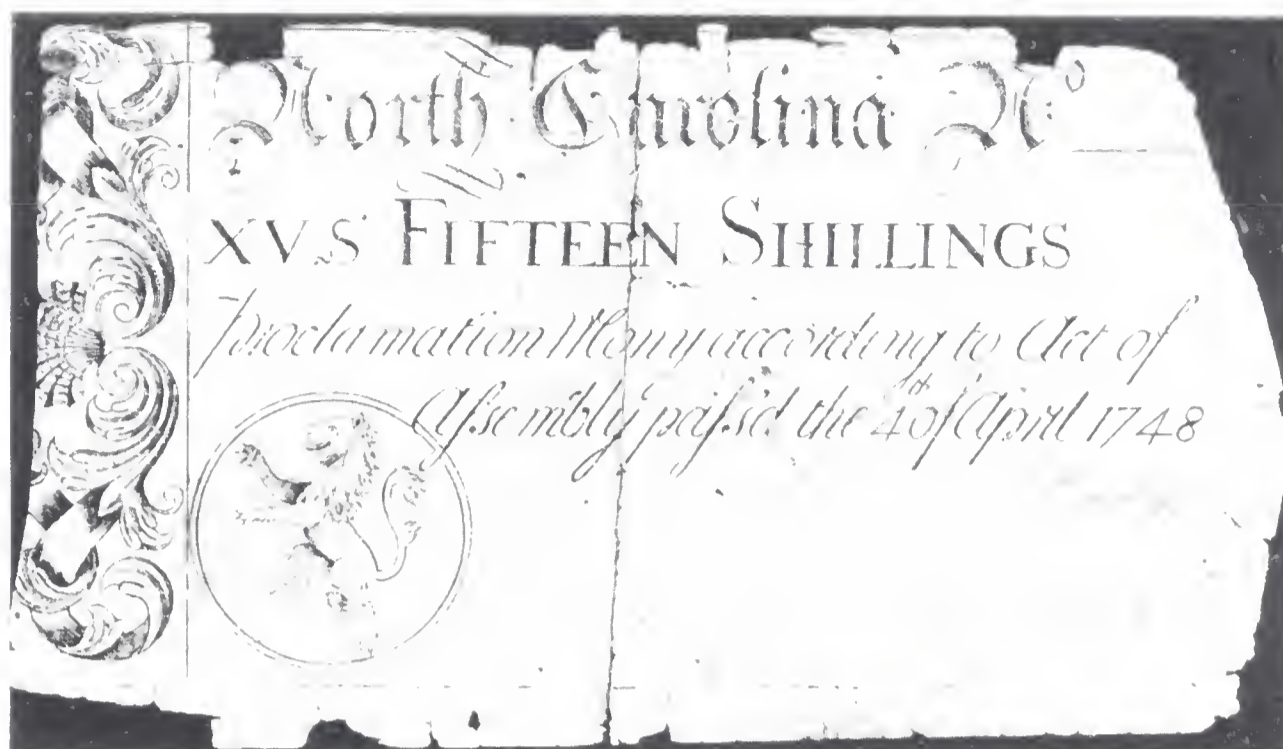 North Carolina Nº
XV.S FIFTEEN SHILLINGS
Proclamation Mony according to Act of
Aſsembly paſs'd the 4th of April 1748